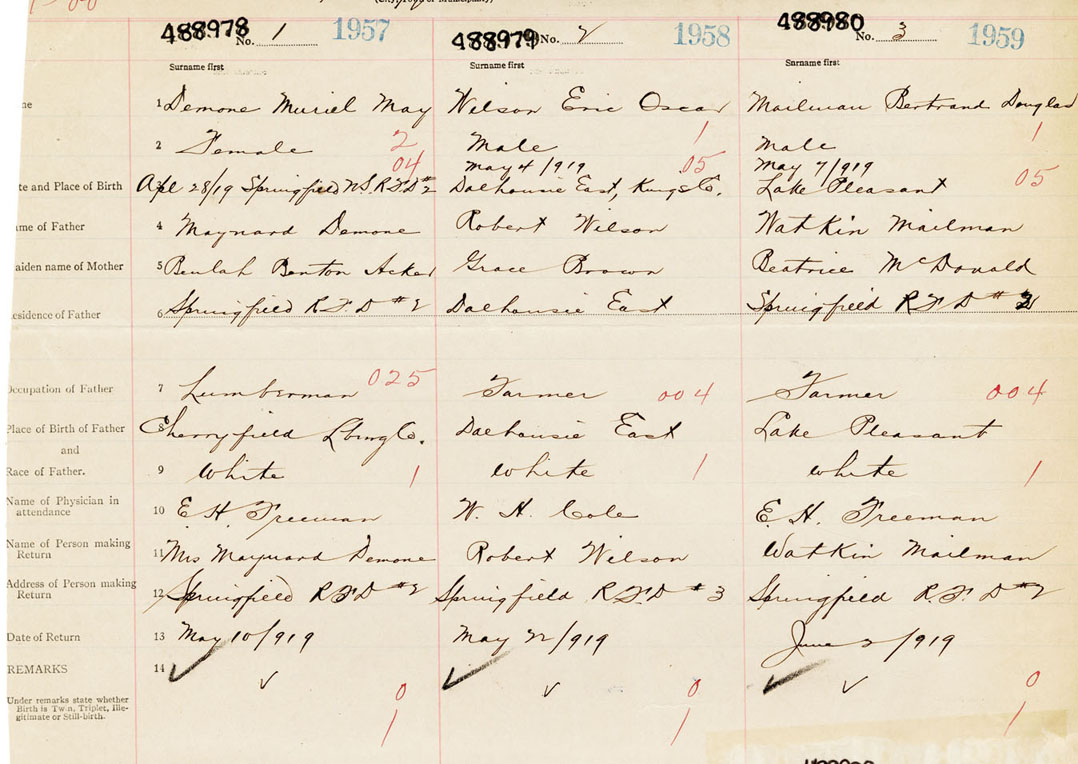 1-00
(City, Town or Municipality)
488978 No. 1 1957 488979 No. 2 1958 488980 No. 3 1959
Surname first Surname first Surname first
1 Demone Muriel May Wilson Eric Oscar Mailman Bertrand Douglas
2 Female 2 Male 1 Male 1
04 May 4/919 05 May 7/919
ate and Place of Birth Apl 28/19 Springfield N.S. R.F.D #2 Dalhousie East, Kings Co. Lake Pleasant 05
me of Father 4 Maynard Demone Robert Wilson Watkin Mailman
aiden name of Mother 5 Beulah Benton Acker Grace Brown Beatrice McDonald
esidence of Father 6 Springfield R.F.D #2 Dalhousie East Springfield R.F.D #
ccupation of Father 7 Lumberman 025 Farmer 004 Farmer 004
Place of Birth of Father 8 Cherryfield Dalhousie East Lake Pleasant
and
Race of Father. 9 White 1 White 1 White 1
Name of Physician in
attendance 10 E. H. Freeman W. H. Cole E. H. Freeman
Name of Person making
Return 11 Mrs Maynard Demone Robert Wilson Watkin Mailman
Address of Person making
Return 12 Springfield R.F.D #2 Springfield R.F.D #3 Springfield R.F.D #2
Date of Return 13 May 10/919 May 22/919 June 2/919
REMARKS 14
Under remarks state whether
Birth is Twin, Triplet, Ille-
gitimate or Still-birth.
0 0 0
1 1 1